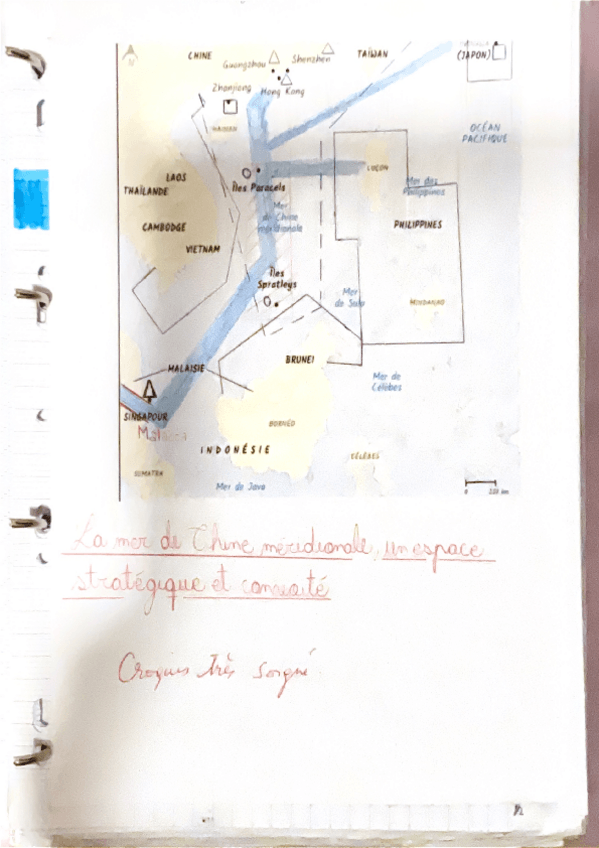 CHINE
TAÏWAN
Shenzhen
Guangzhou
(JAPON)
Zhanjiang
Hong Kong
HAINAN
OCÉAN
PACIFIQUE
LAOS
THAÏLANDE
LUÇON
Îles Paracels
Mer des
Philippines
Mer
de Chine
méridionale
CAMBODGE
PHILIPPINES
VIETNAM
Îles
Spratleys
Mer
de Sulu
MINDANAO
BRUNEI
MALAISIE
Mer de
Célèbes
SINGAPOUR
Malacca
BORNÉO
INDONÉSIE
CÉLÈBES
SUMATRA
Mer de Java
0
La mer de Chine méridionale, un espace
stratégique et convoité
Croquis très soigné